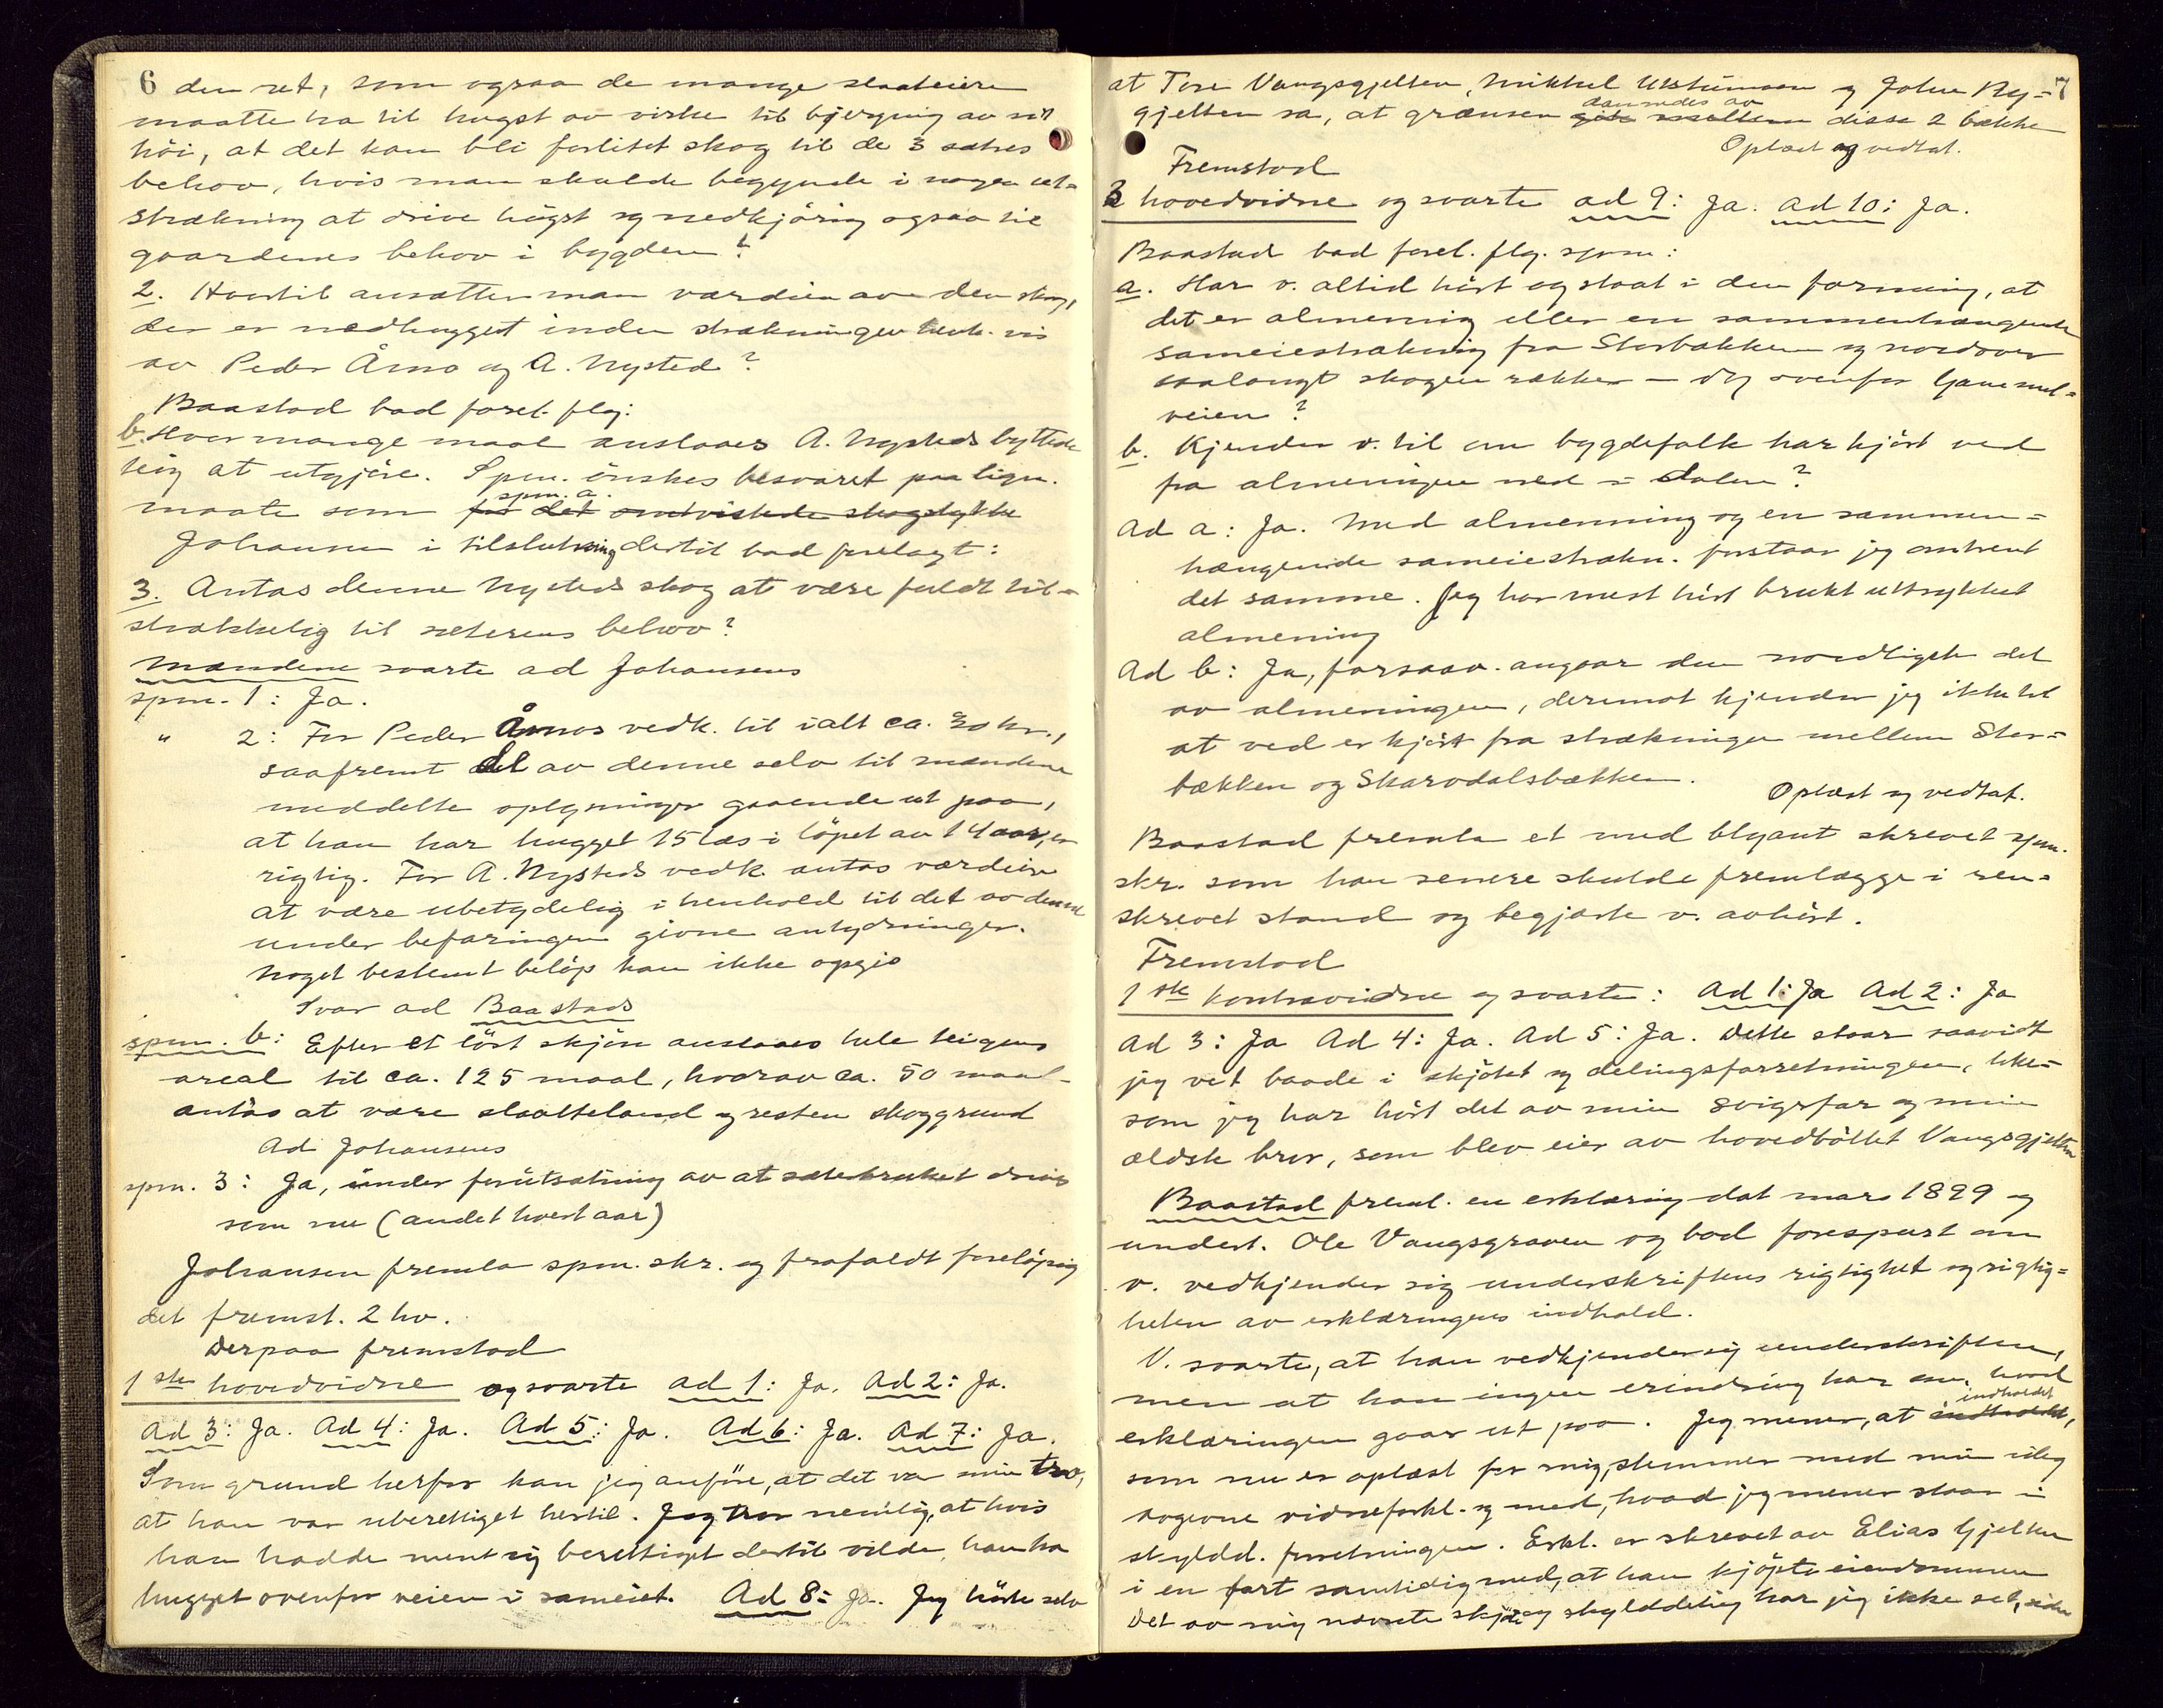 6 den ret, som ogsaa de mange slaateiere
maatte ha til hugst av virke til bjerging av sit
höi, at det kan bli forlitet skog til de 3 sætres
behov, hvis man skulde begynde i nogen ut-
strækning at drive hugst og nedkjöring ogsaa til
gaardenes behov i bygden?
2. Hvortil ansætter man værdien av den skog,
der er nedhugget inden strækningen henh.vis
av Peder Åmo og A. Nysted?
Baastad bad forel. flg:
b. Hvor mange maal anslaaes A. Nysteds byttede
teig at utgjöre. Spm. önskes besvaret paa lign.
maate som spm. a. for det omtvistede skogstykke
Johansen i tilslutning dertil bad forelagt:
3. Antas denne Nysteds skog at være fuldt til-
strækkelig til sæterens behov?
Mændene svarte ad Johansens
spm. 1: Ja.
" 2: For Peder Åmos vedk. til ialt ca. 30 kr.,
saafremt det av denne selv til mændene
meddelte oplysninger gaaende ut paa,
at han har hugget 15 læs i löpet av 14 aar, er
rigtig. For A. Nysteds vedk. antas værdien
at være ubetydelig i henhold til det av denne
under befaringen givne antydninger.
Noget bestemt belöp kan ikke opgis
Svar ad Baastads
spm. b: Efter et löst skjön anslaaes hele teigens
areal til ca. 125 maal, hvorav ca. 50 maal
antas at være slaatteland og resten skoggrund
Ad Johansens
spm. 3: Ja, under forutsætning av at sæterbruket drives
som nu (andet hvert aar)
Johansen fremla spm. skr. og frafaldt foreløpig
det fremst. 2 hv.
Derpaa fremstod
1ste hovedvidne og svarte ad 1: Ja. Ad 2: Ja.
Ad 3: Ja. Ad 4: Ja. Ad 5: Ja. Ad 6: Ja. Ad 7: Ja.
Som grund herfor kan jeg anföre, at det var min tro,
at han var uberettiget hertil. Jeg tror nemlig, at hvis
han hadde ment sig berettiget dertil vilde han ha
hugget ovenfor veien i sameiet. Ad 8: Ja. Jeg hörte selv
7
at Tore Vangsgjelten, Mikkel Utstumoen og John Ny-
gjelten sa, at grænsen dannedes av gik mellem disse 2 bække
Oplæst og vedtat.
Fremstod
3 hovedvidne og svarte ad 9: Ja. ad 10: Ja.
Baastad bad forel. flg. spm:
a. Har v. altid hört og staat i den formening, at
det er almenning eller en sammenhængende
sameiestrækning fra Storbækken og nordover
saalangt skogen rækker – dog ovenfor Gammel-
veien?
b. Kjender v. til om bygdefolk har kjört ved
fra almeningen ned i dalen?
Ad a: Ja. Med almenning og en sammen-
hængende sameiestrækn. forstaar jeg omtrent
det samme. Jeg har mest hört brukt uttrykket
almening
Ad b: Ja, forsaav. angaar den nordligste del
av almeningen, derimot kjender jeg ikke til
at ved er kjört fra strækningen mellem Stor-
bækken og Skarvdalsbækken.
Oplæst og vedtat.
Baastad fremla et med blyant skrevet spm.
skr. som han senere skulde fremlægge i ren-
skrevet stand og begjærte v. avhört.
Fremstod
1ste kontravidne og svarte: Ad 1: Ja Ad 2: Ja
Ad 3: Ja Ad 4: Ja. Ad 5: Ja. Dette staar saavidt
jeg vet baade i skjötet og delingsforretningen, like-
som jeg har hört det av min svigerfar og min
ældste bror, som blev eier av hovedbölet Vangsgjelten
Baastad freml. en erklæring dat mars 1899 og
undert. Ole Vangsgraven og bad forespurt om
v. vedkjender sig underskriftens rigtighet og rigtig-
heten av erklæringens indhold.
V. svarte, at han vedkjender sig underskriften,
men at han ingen erindring har om, hvad
erklæringen gaar ut paa. Jeg mener, at indholdet indholdet,
som nu er oplæst for mig, stemmer med min idag
avgivne vidneforkl. og med, hvad jeg mener staar i
skyldd. forretningen. Erkl. er skrevet av Elias Gjelten
i en fart samtidig med, at han kjöpte eiendommen
Det av mig nævnte skjöte og skylddeling har jeg ikke set, siden